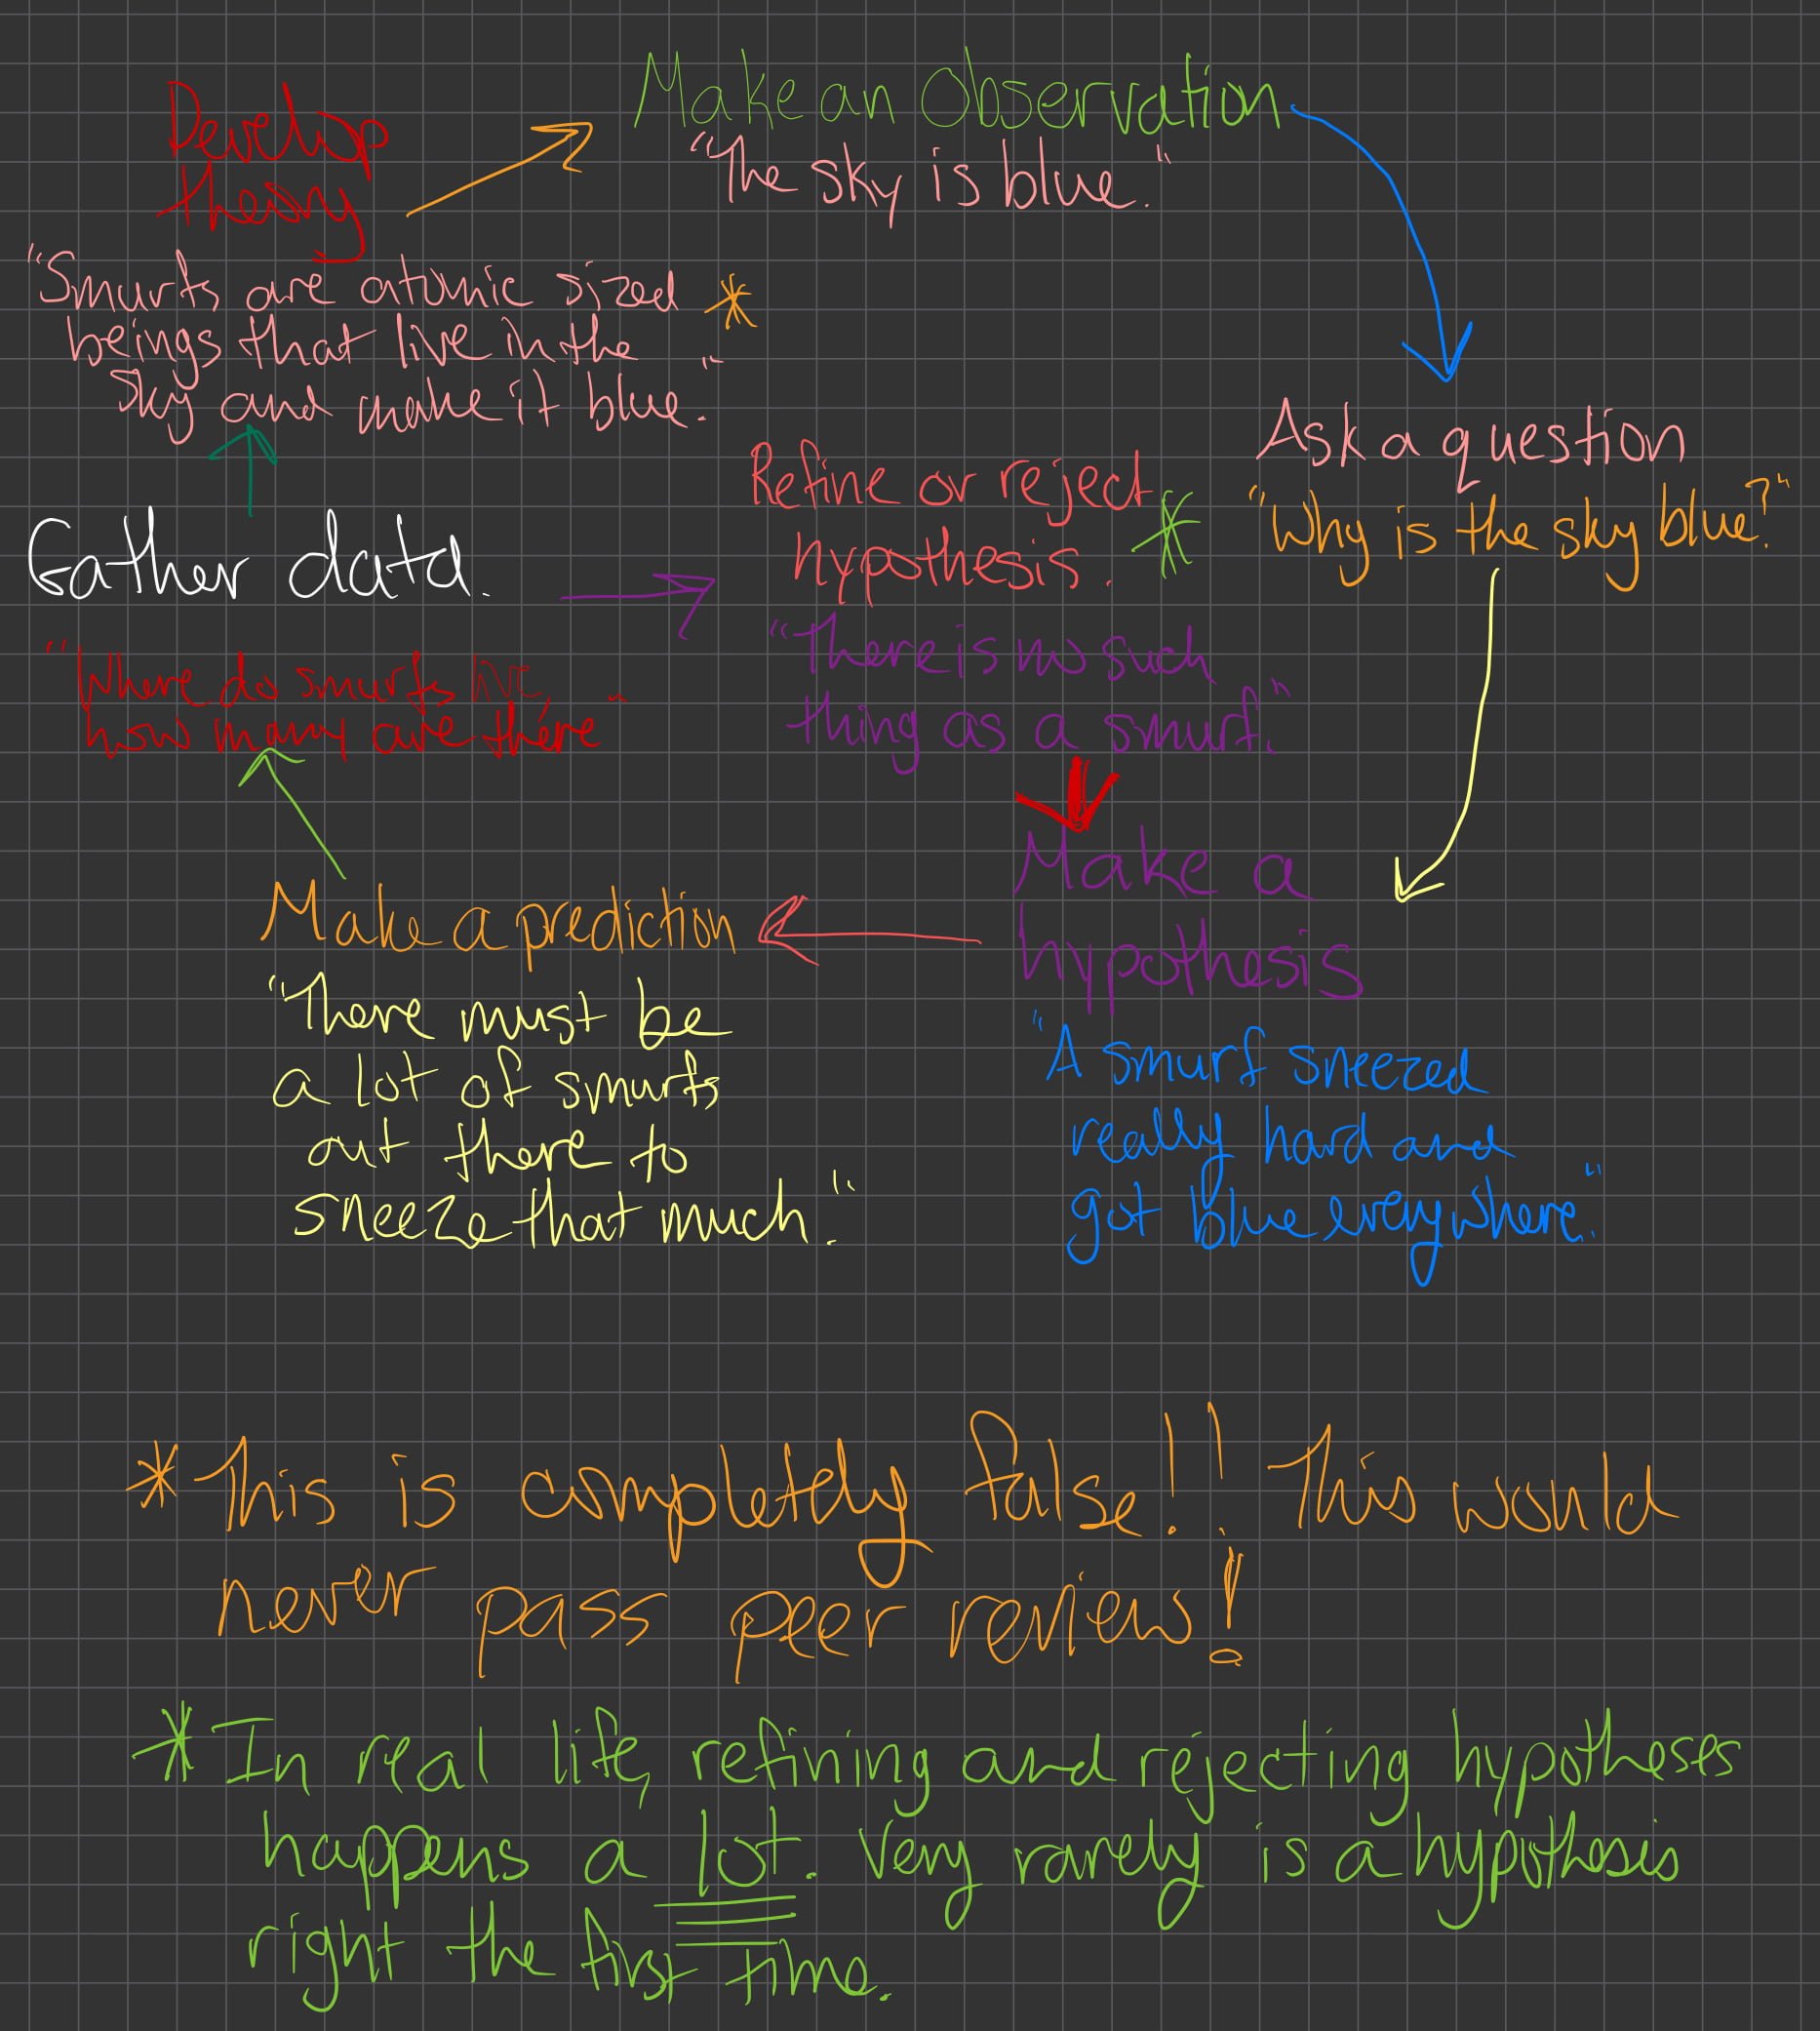 Make an Observation
"The sky is blue."
Develop
theory
"Smurfs are atomic sized *
beings that live in the
sky and make it blue."
Ask a question
"Why is the sky blue?"
Refine or reject
hypothesis. *
"There is no such
thing as a smurf."
Gather data.
"Where do smurfs live,
how many are there"
Make a
hypothesis
"A smurf sneezed
really hard and
got blue everywhere."
Make a prediction
"There must be
a lot of smurfs
out there to
sneeze that much."
* This is completely false!! This would
never pass peer review!
* In real life, refining and rejecting hypotheses
happens a lot. Very rarely is a hypothesis
right the first time.